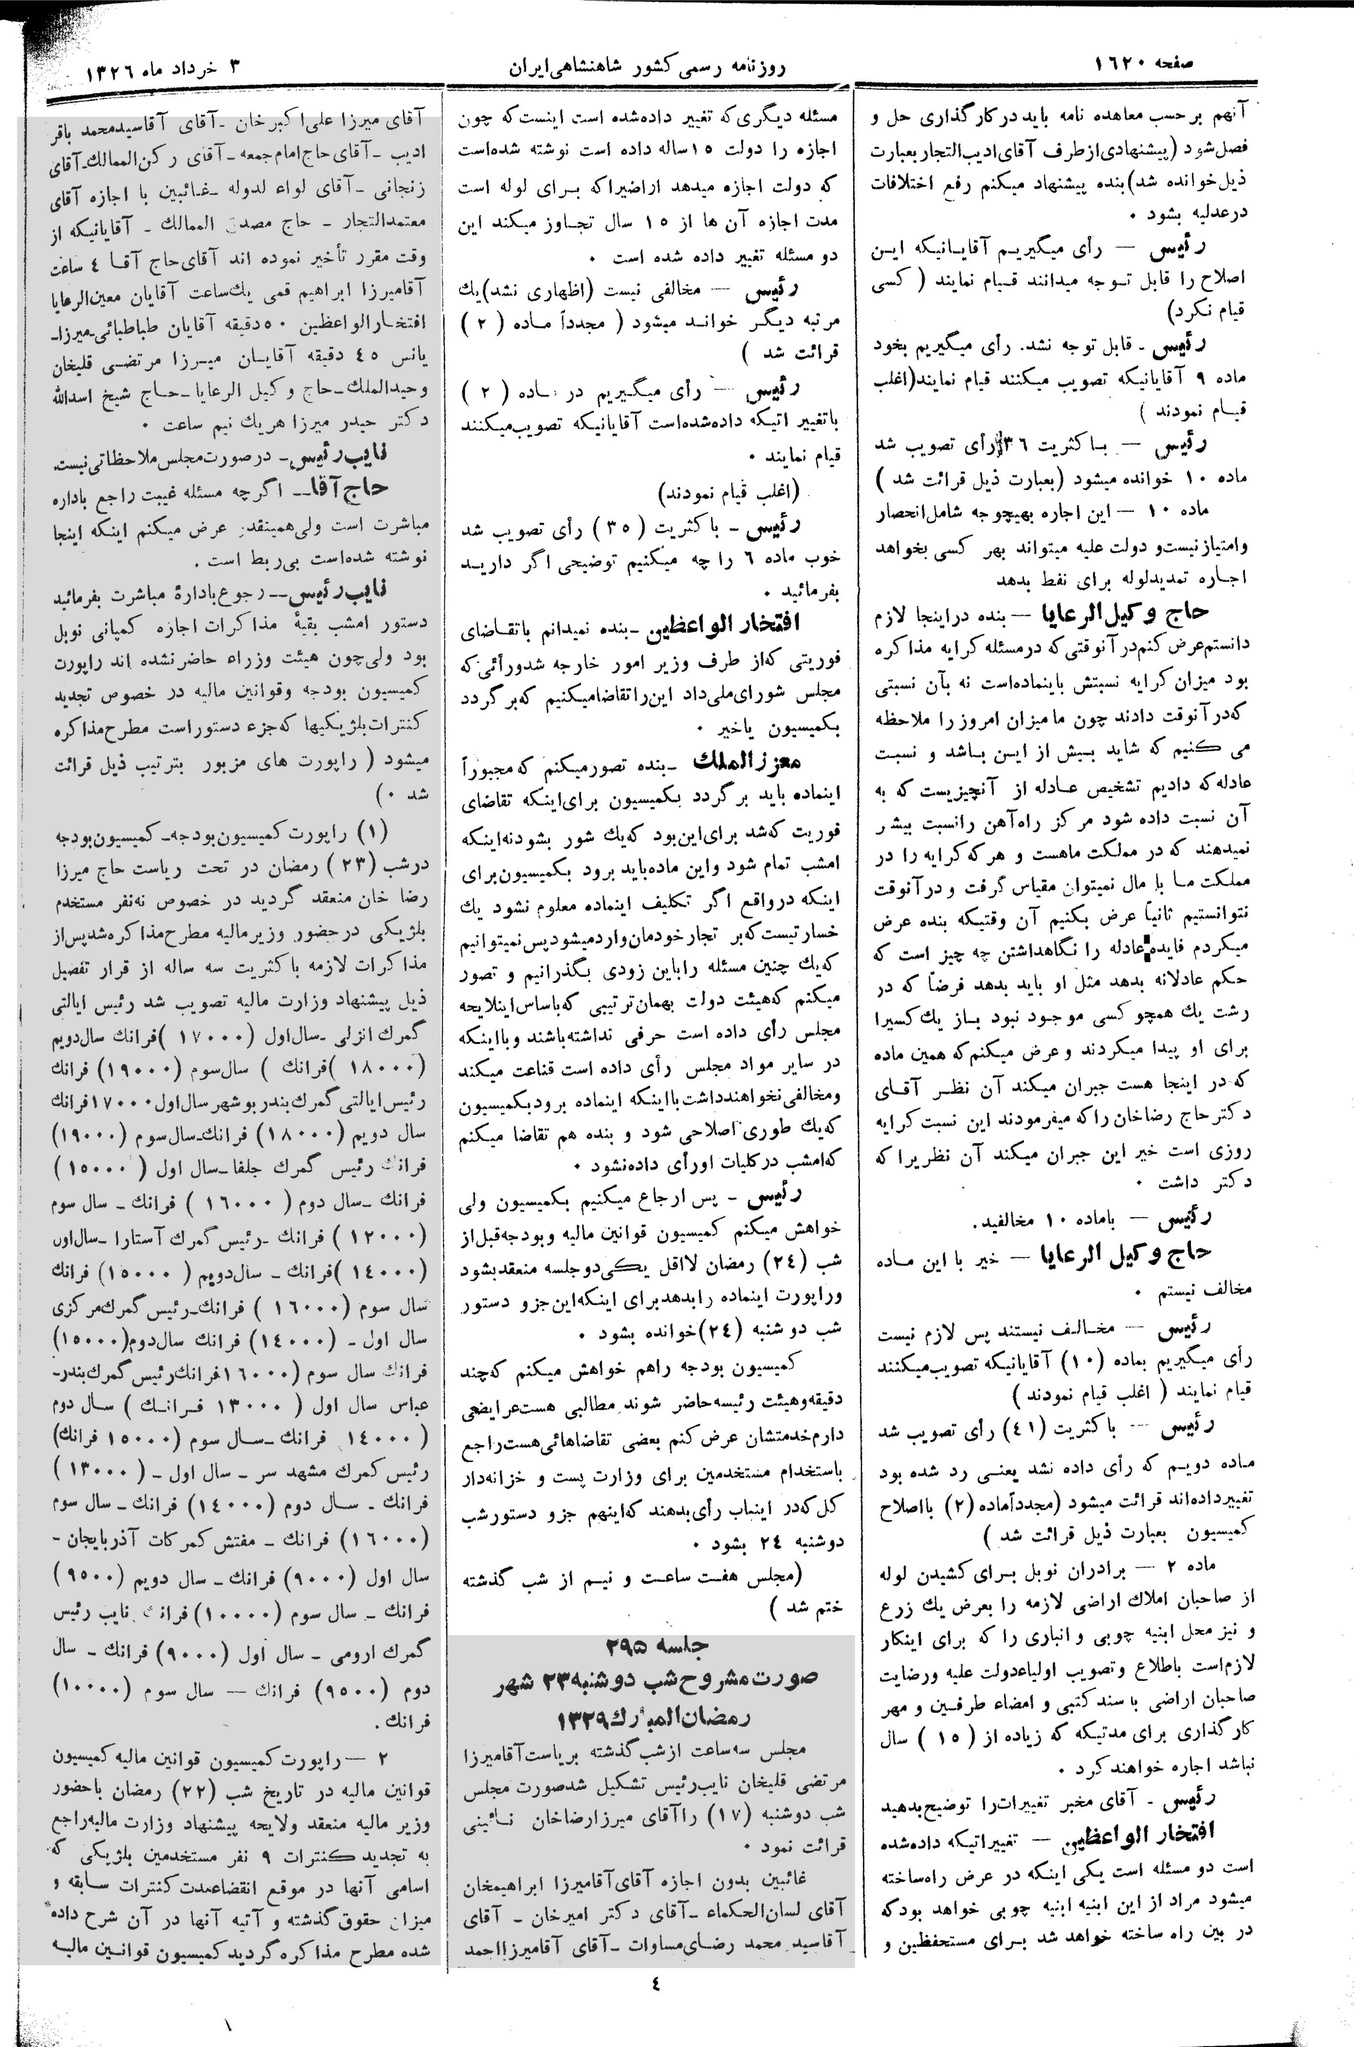 صفحه ۱۶۲۰
روزنامه رسمی کشور شاهنشاهی ایران
۳ خرداد ماه ۱۳۲۶
آنهم برحسب معاهده نامه باید در کارگذاری حل و
فصل شود (پیشنهادی از طرف آقای ادیب التجار بعبارت
ذیل خوانده شد) بنده پیشنهاد میکنم رفع اختلافات
در عدلیه بشود .
رئیس — رأی میگیریم آقایانیکه این
اصلاح را قابل توجه میدانند قیام نمایند ( کسی
قیام نکرد)
رئیس - قابل توجه نشد. رأی میگیریم بخود
ماده ۹ آقایانیکه تصویب میکنند قیام نمایند (اغلب
قیام نمودند )
رئیس — با کثریت ۳۶ رأی تصویب شد
ماده ۱۰ خوانده میشود (بعبارت ذیل قرائت شد )
ماده ۱۰ — این اجاره بهیچوجه شامل انحصار
وامتیاز نیست و دولت علیه میتواند بهر کسی بخواهد
اجاره تمدید لوله برای نفط بدهد
حاج وکیل الرعایا — بنده در اینجا لازم
دانستم عرض کنم در آنوقتی که در مسئله کرایه مذاکره
بود میزان کرایه نسبتش باینماده است نه بآن نسبتی
که در آنوقت دادند چون ما میزان امروز را ملاحظه
می کنیم که شاید بیش از این باشد و نسبت
عادله که دادیم تشخیص عادله از آنچیزیست که به
آن نسبت داده شود مرکز راه آهن را نسبت بیشتر
نمیدهند که در مملکت ماهست و هر که کرایه را در
مملکت ما با مال نمیتوان مقیاس گرفت و در آنوقت
نتوانستیم ثانیاً عرض بکنیم آن وقتیکه بنده عرض
میکردم فایده عادله را نگاهداشتن چه چیز است که
حکم عادلانه بدهد مثل او باید بدهد فرضاً که در
رشت یك همچو کسی موجود نبود باز یك کسیرا
برای او پیدا میکردند و عرض میکنم که همین ماده
که در اینجا هست جبران میکند آن نظر آقای
دکتر حاج رضاخان را که میفرمودند این نسبت کرایه
روزی است خیر این جبران میکند آن نظریرا که
دکتر داشت .
رئیس — باماده ۱۰ مخالفید.
حاج وکیل الرعایا — خیر با این ماده
مخالف نیستم .
رئیس — مخالف نیستند پس لازم نیست
رأی میگیریم بماده (۱۰) آقایانیکه تصویب میکنند
قیام نمایند ( اغلب قیام نمودند )
رئیس — باکثریت (۴۱) رأی تصویب شد
ماده دویم که رأی داده نشد یعنی رد شده بود
تغییر داده اند قرائت میشود (مجدداً ماده (۲) بااصلاح
کمیسیون بعبارت ذیل قرائت شد )
ماده ۲ — برادران نوبل برای کشیدن لوله
از صاحبان املاك اراضی لازمه را بعرض یك زرع
و نیز محل ابنیه چوبی و انباری را که برای اینکار
لازم است باطلاع و تصویب اولیاء دولت علیه و رضایت
صاحبان اراضی با سند کتبی و امضاء طرفین و مهر
کارگذاری برای مدتیکه که زیاده از ( ۱۵ ) سال
نباشد اجاره خواهند کرد .
رئیس - آقای مخبر تغییرات را توضیح بدهید
افتخار الواعظین — تغییراتیکه داده شده
است دو مسئله است یکی اینکه در عرض راه ساخته
میشود مراد از این ابنیه ابنیه چوبی خواهد بود که
در بین راه ساخته خواهد شد برای مستحفظین و
مسئله دیگری که تغییر داده شده است اینست که چون
اجازه را دولت ۱۵ ساله داده است نوشته شده است
که دولت اجازه میدهد اراضیرا که برای لوله است
مدت اجازه آن ها از ۱۵ سال تجاوز میکند این
دو مسئله تغییر داده شده است .
رئیس — مخالفی نیست (اظهاری نشد) یك
مرتبه دیگر خواند میشود ( مجدداً ماده ( ۲ )
قرائت شد )
رئیس — رأی میگیریم در ماده ( ۲ )
باتغییر اتیکه داده شده است آقایانیکه تصویب میکنند
قیام نمایند .
(اغلب قیام نمودند)
رئیس - باکثریت (۳۵) رأی تصویب شد
خوب ماده ۶ را چه میکنیم توضیحی اگر دارید
بفرمائید .
افتخار الواعظین - بنده نمیدانم با تقاضای
فوریتی که از طرف وزیر امور خارجه شد ورأئی که
مجلس شورای ملی داد این را تقاضا میکنیم که برگردد
بکمیسیون یاخیر .
معزز الملك - بنده تصور میکنم که مجبوراً
اینماده باید برگردد بکمیسیون برای اینکه تقاضای
فوریت که شد برای این بود که یك شور بشود نه اینکه
امشب تمام شود و این ماده باید برود بکمیسیون برای
اینکه در واقع اگر تکلیف اینماده معلوم نشود یك
خسارتیست که بر تجار خودمان وارد میشود پس نمیتوانیم
که یك چنین مسئله را باین زودی بگذرانیم و تصور
میکنم که هیئت دولت بهمان ترتیبی که باساس اینلایحه
مجلس رأی داده است حرفی نداشته باشند و بااینکه
در سایر مواد مجلس رأی داده است قناعت میکند
و مخالفی نخواهند داشت بااینکه اینماده برود بکمیسیون
که یك طوری اصلاحی شود و بنده هم تقاضا میکنم
که امشب در کلیات او رأی داده نشود .
رئیس - پس ارجاع میکنیم بکمیسیون ولی
خواهش میکنم کمیسیون قوانین مالیه و بودجه قبل از
شب (۲۴) رمضان لااقل یکی دو جلسه منعقد بشود
و راپورت اینماده را بدهد برای اینکه این جزو دستور
شب دو شنبه (۲۴) خوانده بشود .
کمیسیون بودجه راهم خواهش میکنم که چند
دقیقه و هیئت رئیسه حاضر شوند مطالبی هست عرایضی
دارم خدمتشان عرض کنم بعضی تقاضاهائی هست راجع
باستخدام مستخدمین برای وزارت پست و خزانه دار
کل که در اینباب رأی بدهند که اینهم جزو دستور شب
دوشنبه ۲۴ بشود .
(مجلس هفت ساعت و نیم از شب گذشته
ختم شد )
جلسه ۲۹۵
صورت مشروح شب دوشنبه ۲۳ شهر
رمضان المبارك ۱۳۲۹
مجلس سه ساعت از شب گذشته بریاست آقامیرزا
مرتضی قلیخان نایب رئیس تشکیل شد صورت مجلس
شب دوشنبه (۱۷) را آقای میرزا رضاخان نائینی
قرائت نمود .
غائبین بدون اجازه آقای آقامیرزا ابراهیمخان
آقای لسان الحکماء - آقای دکتر امیرخان - آقای
آقاسید محمد رضای مساوات - آقای آقامیرزا احمد
آقای میرزا علی اکبر خان - آقای آقاسید محمد باقر
ادیب - آقای حاج امام جمعه - آقای رکن الممالك - آقای
زنجانی - آقای لواء لدوله - غائبین با اجازه آقای
معتمد التجار - حاج مصدق الممالك - آقایانیکه از
وقت مقرر تأخیر نموده اند آقای حاج آقا ۴ ساعت
آقامیرزا ابراهیم قمی یك ساعت آقایان معین الرعایا
افتخار الواعظین ۵۰ دقیقه آقایان طباطبائی - میرزا -
یانس ۴۵ دقیقه آقایان میرزا مرتضی قلیخان
وحید الملك - حاج وکیل الرعایا - حاج شیخ اسدالله
دکتر حیدر میرزا هر یك نیم ساعت .
نایب رئیس - در صورت مجلس ملاحظاتی نیست.
حاج آقا — اگر چه مسئله غیبت راجع باداره
مباشرت است ولی همینقدر عرض میکنم اینکه اینجا
نوشته شده است بی ربط است .
نایب رئیس — رجوع بادارۀ مباشرت بفرمائید
دستور امشب بقیۀ مذاکرات اجازه کمپانی نوبل
بود ولی چون هیئت وزراء حاضر نشده اند راپورت
کمیسیون بودجه و قوانین مالیه در خصوص تجدید
کنترات بلژیکیها که جزء دستور است مطرح مذاکره
میشود ( راپورت های مزبور بترتیب ذیل قرائت
شد .)
(۱) راپورت کمیسیون بودجه - کمیسیون بودجه
در شب (۲۳) رمضان در تحت ریاست حاج میرزا
رضا خان منعقد گردید در خصوص نه نفر مستخدم
بلژیکی در حضور وزیر مالیه مطرح مذاکره شد پس از
مذاکرات لازمه باکثریت سه ساله از قرار تفصیل
ذیل پیشنهاد وزارت مالیه تصویب شد رئیس ایالتی
گمرك انزلی - سال اول (۱۷۰۰۰ )فرانك سال دویم
(۱۸۰۰۰ )فرانك ) سال سوم (۱۹۰۰۰) فرانك
رئیس ایالتی گمرك بندر بوشهر سال اول ۱۷۰۰۰ فرانك
سال دویم (۱۸۰۰۰) فرانك - سال سوم (۱۹۰۰۰)
فرانك رئیس گمرك جلفا - سال اول ( ۱۵۰۰۰)
فرانك - سال دوم ( ۱۶۰۰۰ ) فرانك - سال سوم
(۱۲۰۰۰ ) فرانك - رئیس گمرك آستارا - سال اول
(۱۴۰۰۰ )فرانك - سال دویم ( ۱۵۰۰۰) فرانك
سال سوم (۱۶۰۰۰ ) فرانك - رئیس گمرك مرکزی
سال اول - (۱۴۰۰۰) فرانك سال دوم (۱۵۰۰۰)
فرانك سال سوم (۱۶۰۰۰ فرانك رئیس گمرك بندر -
عباس سال اول ( ۱۳۰۰۰ فرانك ) سال دوم
(۱۴۰۰۰ فرانك - سال سوم (۱۵۰۰۰ فرانك)
رئیس گمرك مشهد سر - سال اول - (۱۳۰۰۰ )
فرانك - سال دوم (۱۴۰۰۰) فرانك - سال سوم
(۱۶۰۰۰) فرانك - مفتش گمرکات آذربایجان -
سال اول (۹۰۰۰) فرانك - سال دویم (۹۵۰۰)
فرانك - سال سوم (۱۰۰۰۰) فرانك نایب رئیس
گمرك ارومی - سال اول (۹۰۰۰) فرانك - سال
دوم (۹۵۰۰) فرانك — سال سوم (۱۰۰۰۰)
فرانك .
۲ — راپورت کمیسیون قوانین مالیه کمیسیون
قوانین مالیه در تاریخ شب (۲۲) رمضان باحضور
وزیر مالیه منعقد ولایحه پیشنهاد وزارت مالیه راجع
به تجدید کنترات ۹ نفر مستخدمین بلژیکی که
اسامی آنها در موقع انقضاء مدت کنترات سابقه و
میزان حقوق گذشته و آتیه آنها در آن شرح داده
شده مطرح مذاکره گردید کمیسیون قوانین مالیه
۴